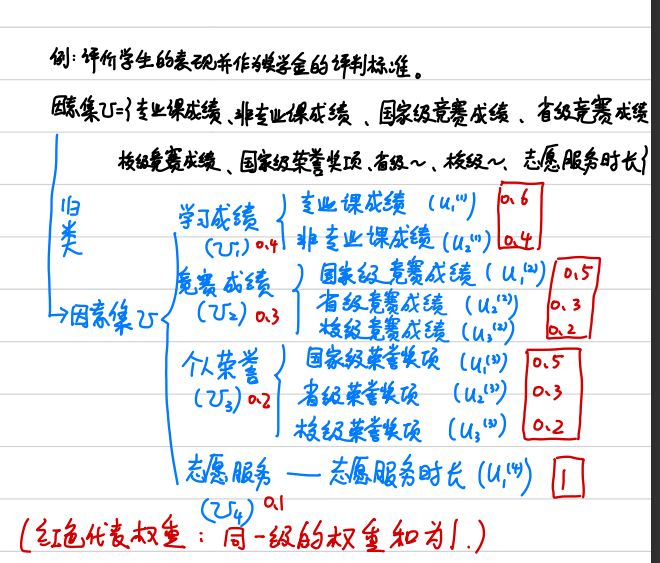 例：评价学生的表现并作为奖学金的评判标准。
因素集U={专业课成绩、非专业课成绩、国家级竞赛成绩、省级竞赛成绩
校级竞赛成绩、国家级荣誉奖项、省级～、校级～、志愿服务时长}
归类
→因素集U
学习成绩 (U₁) 0.4
专业课成绩 (u₁⁽¹⁾) 0.6
非专业课成绩 (u₂⁽¹⁾) 0.4
竞赛成绩 (U₂) 0.3
国家级竞赛成绩 (u₁⁽²⁾) 0.5
省级竞赛成绩 (u₂⁽²⁾) 0.3
校级竞赛成绩 (u₃⁽²⁾) 0.2
个人荣誉 (U₃) 0.2
国家级荣誉奖项 (u₁⁽³⁾) 0.5
省级荣誉奖项 (u₂⁽³⁾) 0.3
校级荣誉奖项 (u₃⁽³⁾) 0.2
志愿服务 — 志愿服务时长 (u₁⁽⁴⁾) 1
(U₄) 0.1
(红色代表权重：同一级的权重和为1.)